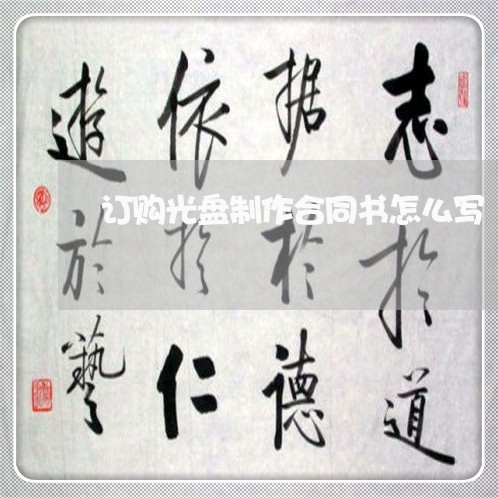 志於道
据於德
依於仁
遊於藝
订购光盘制作合同书怎么写